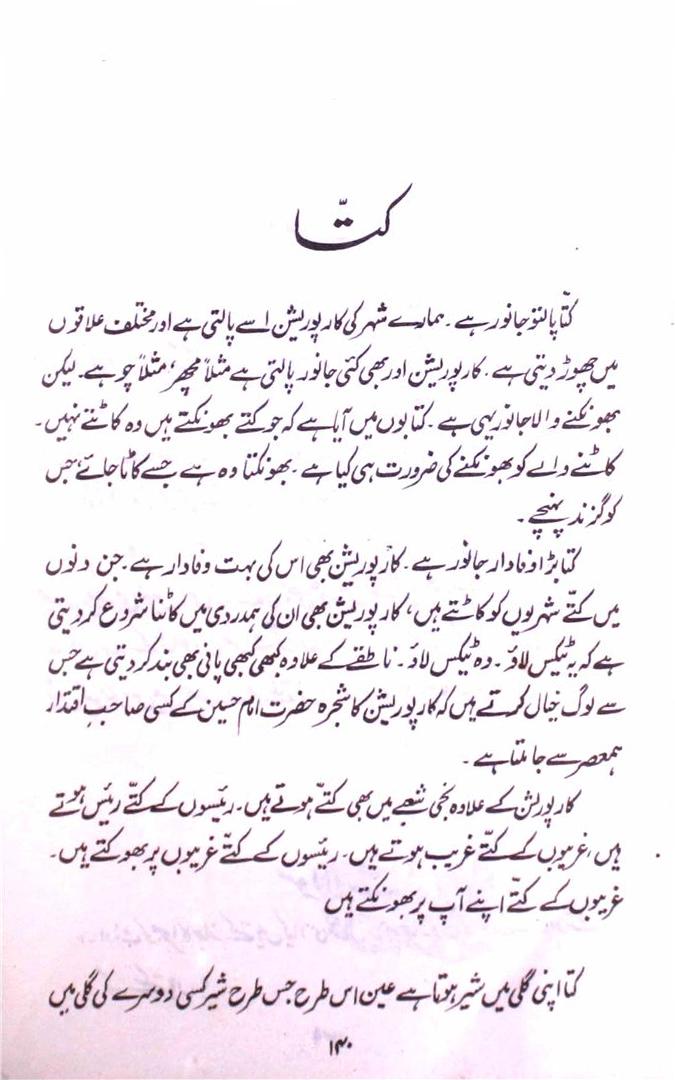 کتّا
کتّا پالتو جانور ہے۔ ہمارے شہر کی کارپوریشن اسے پالتی ہے اور مختلف علاقوں
میں چھوڑ دیتی ہے۔ کارپوریشن اور بھی کئی جانور پالتی ہے مثلاً مچھر، مثلاً چوہے۔ لیکن
بھونکنے والا جانور یہی ہے۔ کتابوں میں آیا ہے کہ جو کتّے بھونکتے ہیں وہ کاٹتے نہیں۔
کاٹنے والے کو بھونکنے کی ضرورت ہی کیا ہے۔ بھونکتا وہ ہے جسے کاٹا جائے، جس
کو گزند پہنچے۔
کتا بڑا وفادار جانور ہے۔ کارپوریشن بھی اس کی بہت وفادار ہے۔ جن دنوں
میں کتّے شہریوں کو کاٹتے ہیں، کارپوریشن بھی ان کی ہمدردی میں کاٹنا شروع کر دیتی
ہے کہ یہ ٹیکس لاؤ۔ وہ ٹیکس لاؤ۔ ناطقے کے علاوہ کبھی کبھی پانی بھی بند کر دیتی ہے جس
سے لوگ خیال کرتے ہیں کہ کارپوریشن کا شجرہ حضرت امام حسین کے کسی صاحبِ اقتدار
ہمعصر سے جا ملتا ہے۔
کارپوریشن کے علاوہ نجی شعبے میں بھی کتّے ہوتے ہیں۔ رئیسوں کے کتّے رئیس ہوتے
ہیں، غریبوں کے کتّے غریب ہوتے ہیں۔ رئیسوں کے کتّے غریبوں پر بھونکتے ہیں۔
غریبوں کے کتّے اپنے آپ پر بھونکتے ہیں
کتا اپنی گلی میں شیر ہوتا ہے عین اس طرح جس طرح شیر کسی دوسرے کی گلی میں
۱۴۰